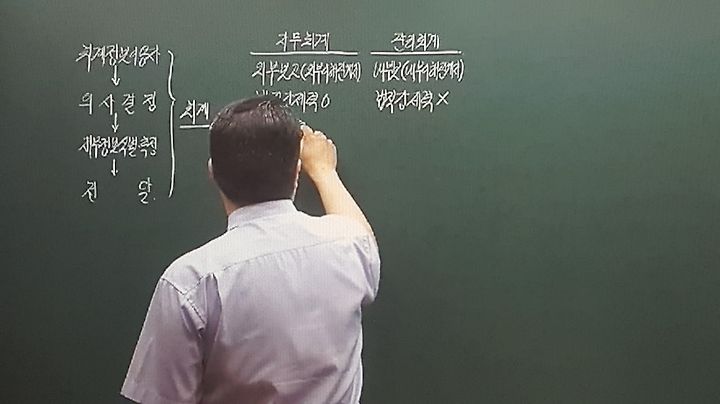 회계정보이용자
↓
의사결정
↓
재무정보식별·측정
↓
전 달
회계
재무회계
외부보고(외부이해관계자)
법적강제력 O
관리회계
내부보고(내부이해관계자)
법적강제력 X